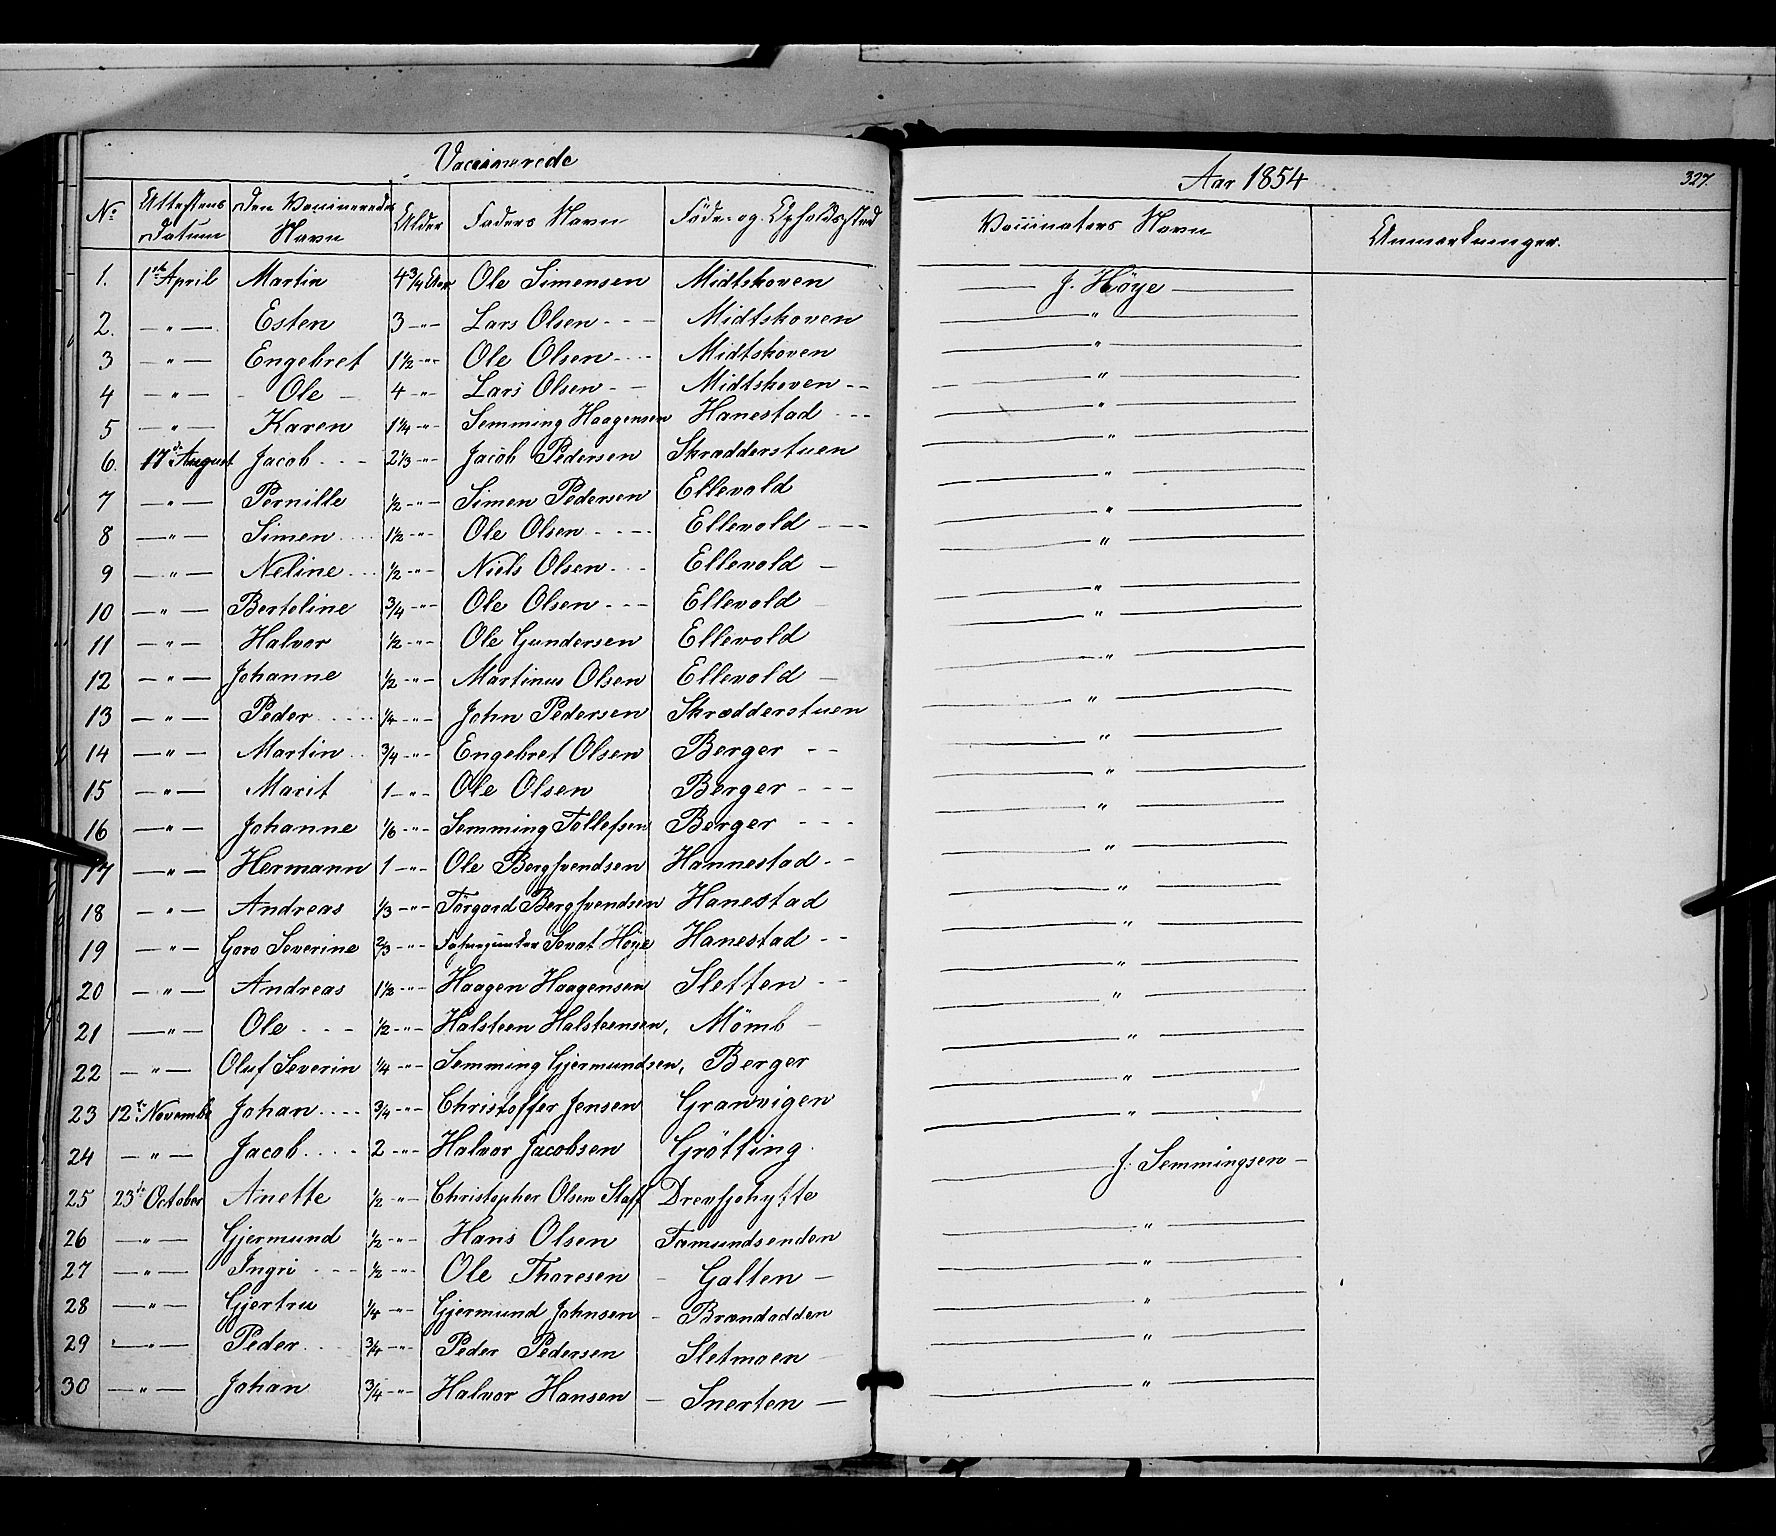 Vaccinerede
Aar 1854
327.
No | Attestens Datum | Den Vaccineredes Navn | Alder | Faders Navn | Føde- og Opholdssted | Vaccinators Navn | Anmærkninger.
1. | 1ste April | Martin | 4 3/4 | Ole Simensen | Midtskoven | — J. Høye —
2. | — " — | Esten | 3 - " - | Lars Olsen - - - | Midtskoven | — " —
3 | — " — | Engebret | 1 1/2 - " - | Ole Olsen - - - | Midtskoven | — " —
4 | — " — | - Ole - | 4 - " - | Lars Olsen - - | Midtskoven - - | — " —
5 | — " — | Karen | 1 1/4 - " - | Semming Haagensen | Hanestad - - - | — " —
6. | 17de August | Jacob - - - | 2 1/3 - " - | Jacob Pedersen | Skrædderstuen | — " —
7 | — " — | Pernille | 1/2 - " - | Simen Pedersen | Ellevold | — " —
8 | — " — | Simen | 1 1/2 - " - | Ole Olsen - - - - | Ellevold - - - | — " —
9 | — " — | Neline | 1/2 - " - | Niels Olsen - - - | Ellevold - | — " —
10 | — " — | Berteline | 3/4 - " - | Ole Olsen - - - | Ellevold | — " —
11 | — " — | Halvor | 1/2 - " - | Ole Gundersen | Ellevold | — " —
12 | — " — | Johanne | 1/2 - " - | Martinus Olsen | Ellevold - | — " —
13 | — " — | Peder | 1/4 - " - | John Pedersen | Skrædderstuen | — " —
14 | — " — | Martin | 3/4 - " - | Engebret Olsen | Berger - - | — " —
15 | — " — | Marit | 1 - " - | Ole Olsen | Berger - - - | — " —
16 | — " — | Johanne | 1/6 - " - | Semming Tollefsen | Berger - - - | — " —
17 | — " — | Hermann | 1 - " - | Ole Bergsvendsen | Hannestad - - | — " —
18 | — " — | Andreas | 1/3 - " - | Torgard Bergsvendsen | Hanestad | — " —
19 | — " — | Goro Severine | 2/3 - " - | Høye | Hanestad - - | — " —
20 | — " — | Andreas | 1 1/2 - " - | Haagen Haagensen | Sletten - - | — " —
21 | — " — | Ole - - - | 1/2 - " - | Halsteen Halsteensen, | Mömb - | — " —
22 | — " — | Oluf Severin | 1/4 - " - | Semming Gjermundsen, | Berger | — " —
23 | 12te Novembe | Johan - - - - | 3/4 - " - | Christoffer Jensen | Granvigen | — " —
24 | — " — | Jacob - - - - | 2 - " - | Halvor Jacobsen | Grötting. | — J. Semmingsen —
25 | 23de October | Anette | 1/2 - " - | Christopher Olsen Staff | Drevsjohytte | — " —
26 | — " — | Gjermund | 1/2 - " - | Hans Olsen | Fæmundsenden | — " —
27 | — " — | Ingri - - - | 1/2 - " - | Ole Thoresen - | Galten - | — " —
28 | — " — | Gjertru | 1/4 - " - | Gjermund Johnsen - | Brændodden | — " —
29 | — " — | Peder | 3/4 - " - | Peder Pedersen | Sletmoen - | — " —
30 | — " — | Johan | 3/4 - " - | Halvor Hansen - | Snerten —